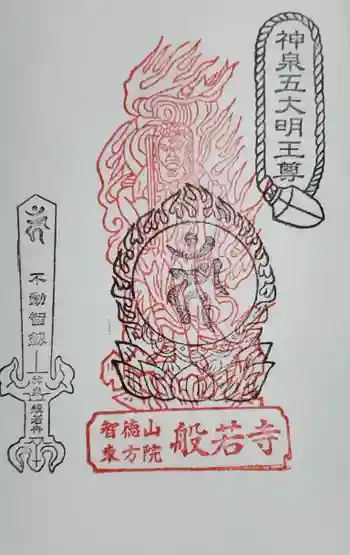 神泉五大明王尊
不動智劔
神泉
般若寺
智德山
東方院
般若寺